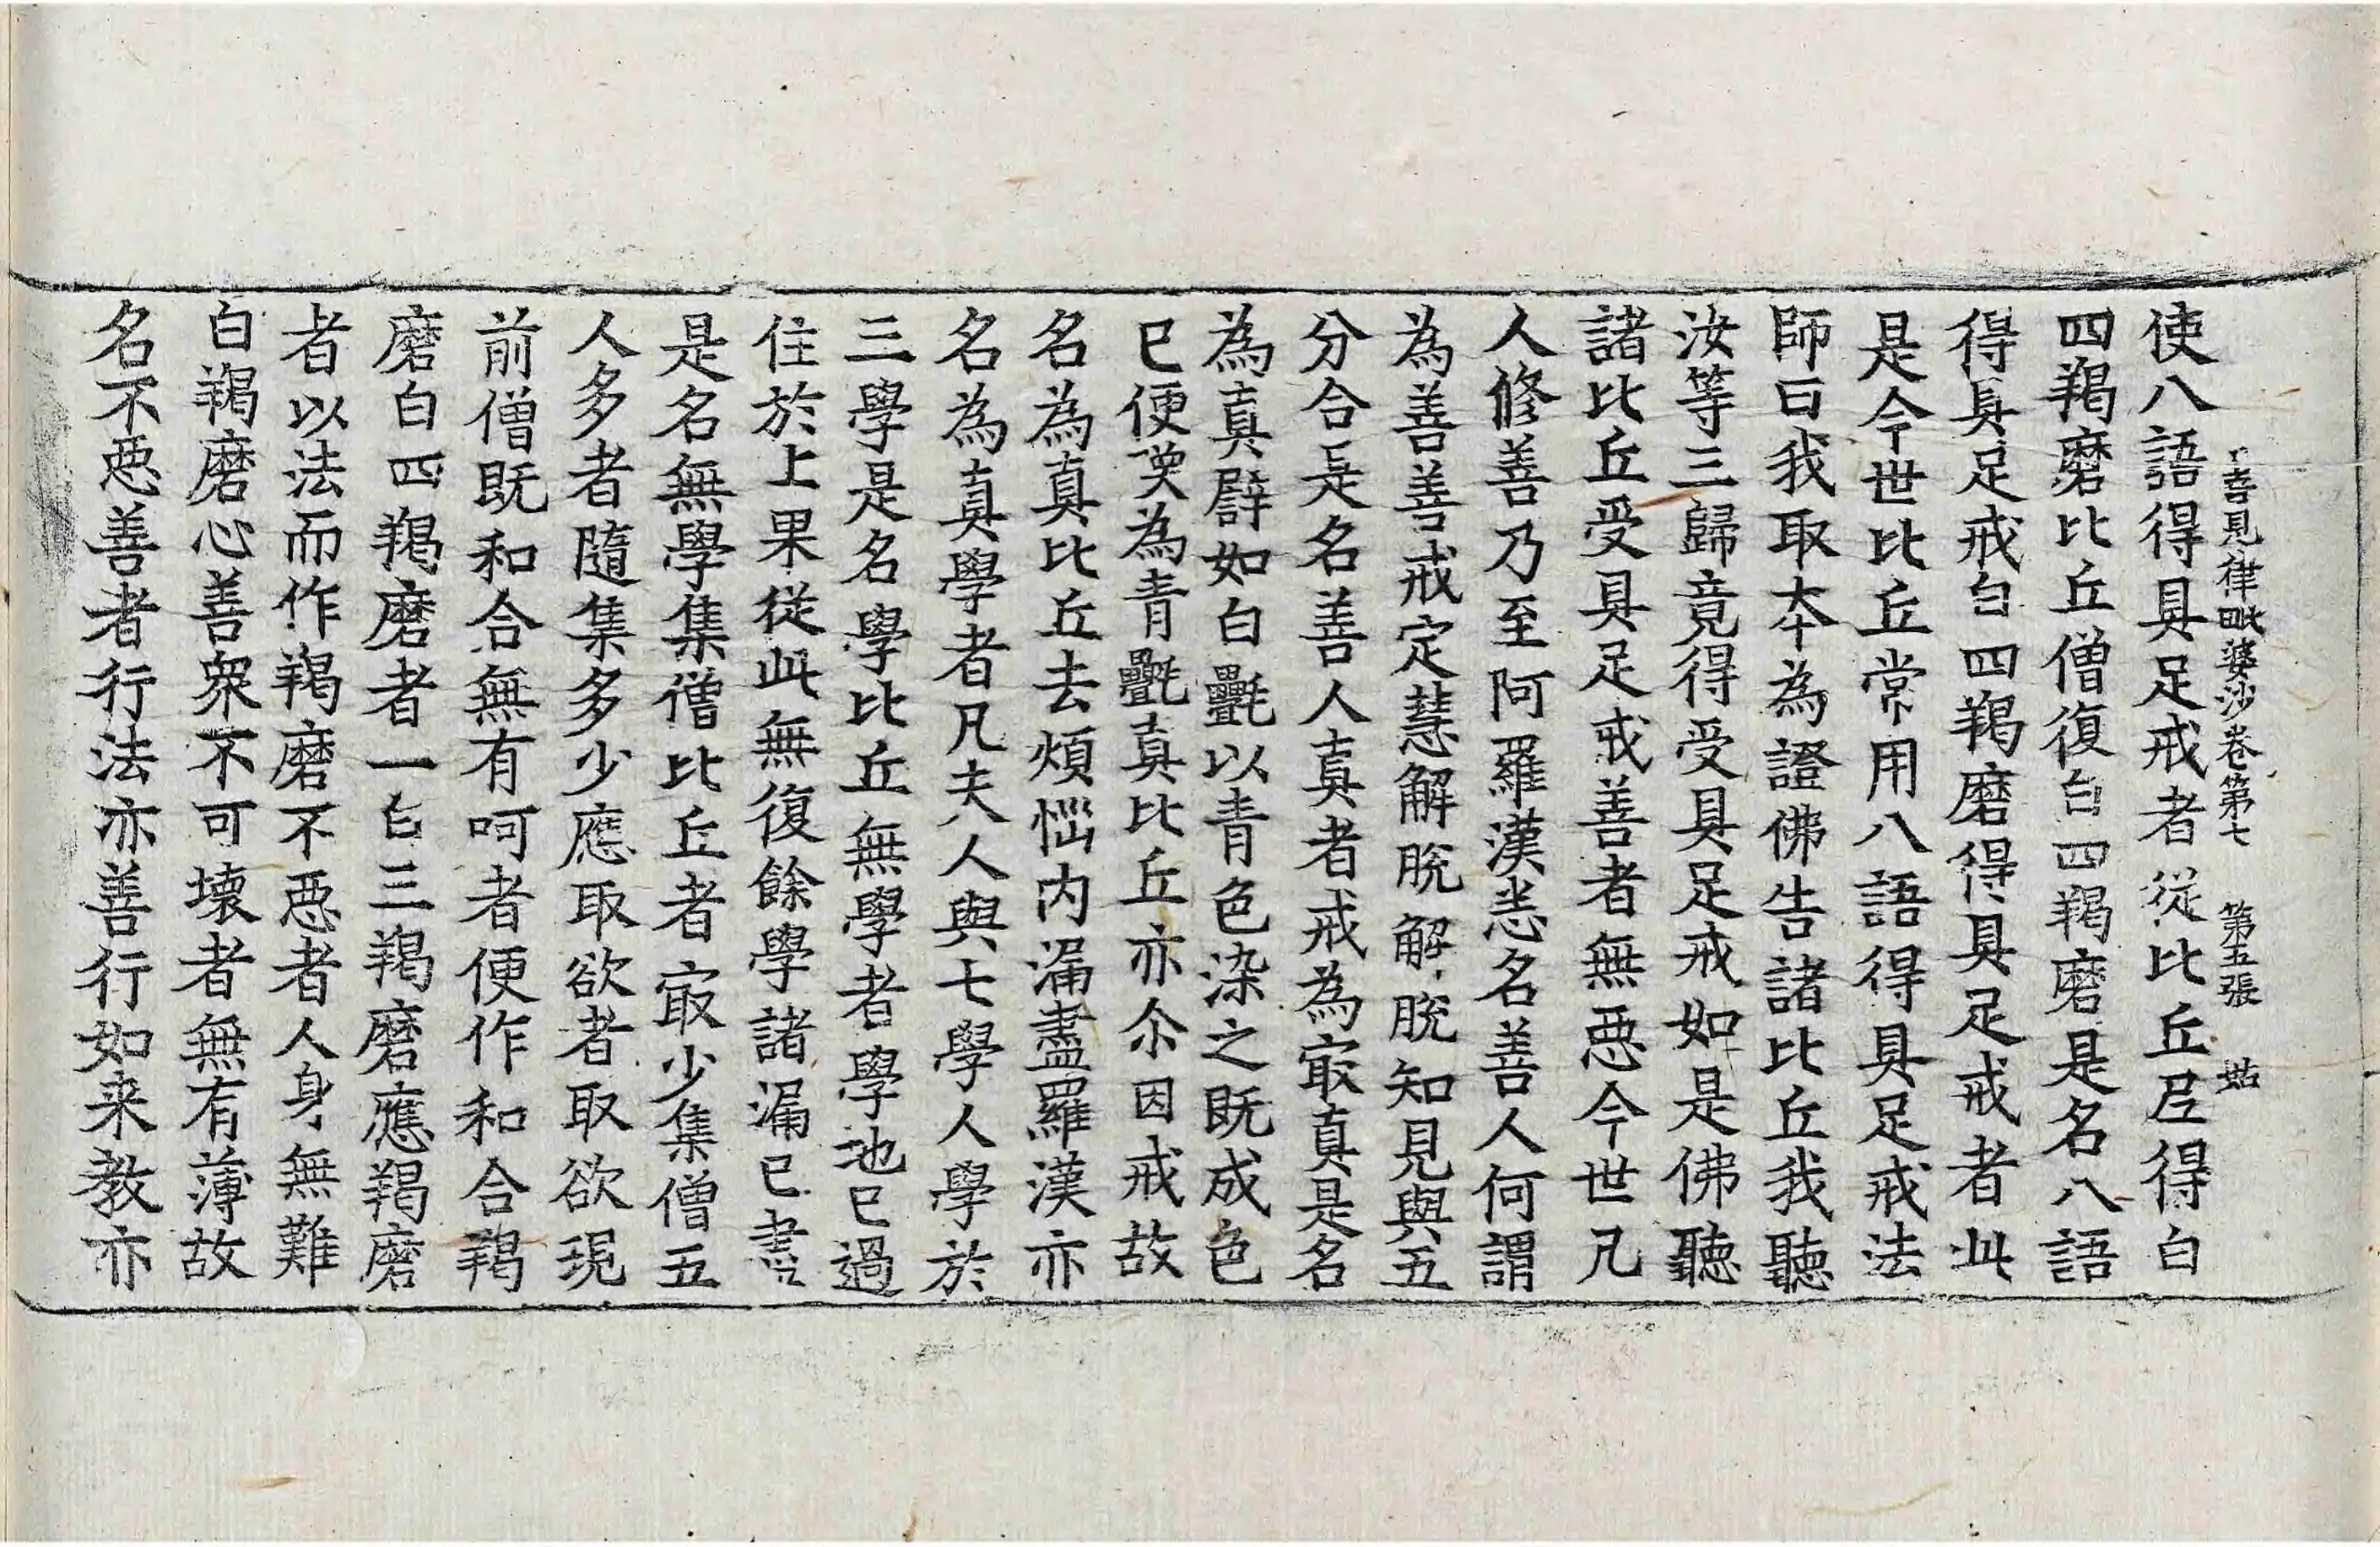 善見律毗婆沙卷第七 第五張 姑
使八語得具足戒者從比丘尼得白
四羯磨比丘僧復白四羯磨是名八語
得具足戒白四羯磨得具足戒者此
是今世比丘常用八語得具足戒法
師曰我取本為證佛告諸比丘我聽
汝等三歸竟得受具足戒如是佛聽
諸比丘受具足戒善者無惡今世凡
人修善乃至阿羅漢恙名善人何謂
為善善戒定慧解脫解脫知見與五
分合是名善人真者戒為㝡真是名
為真譬如白㲲以青色染之既成色
已便嘆為青㲲真比丘亦尒因戒故
名為真比丘去煩惱內漏盡羅漢亦
名為真學者凡夫人與七學人學於
三學是名學比丘無學者學地已過
住於上果從此無復餘學諸漏已盡
是名無學集僧比丘者㝡少集僧五
人多者隨集多少應取欲者取欲現
前僧既和合無有呵者便作和合羯
磨白四羯磨者一白三羯磨應羯磨
者以法而作羯磨不惡者人身無難
白羯磨心善衆不可壞者無有薄故
名不惡善者行法亦善行如来教亦